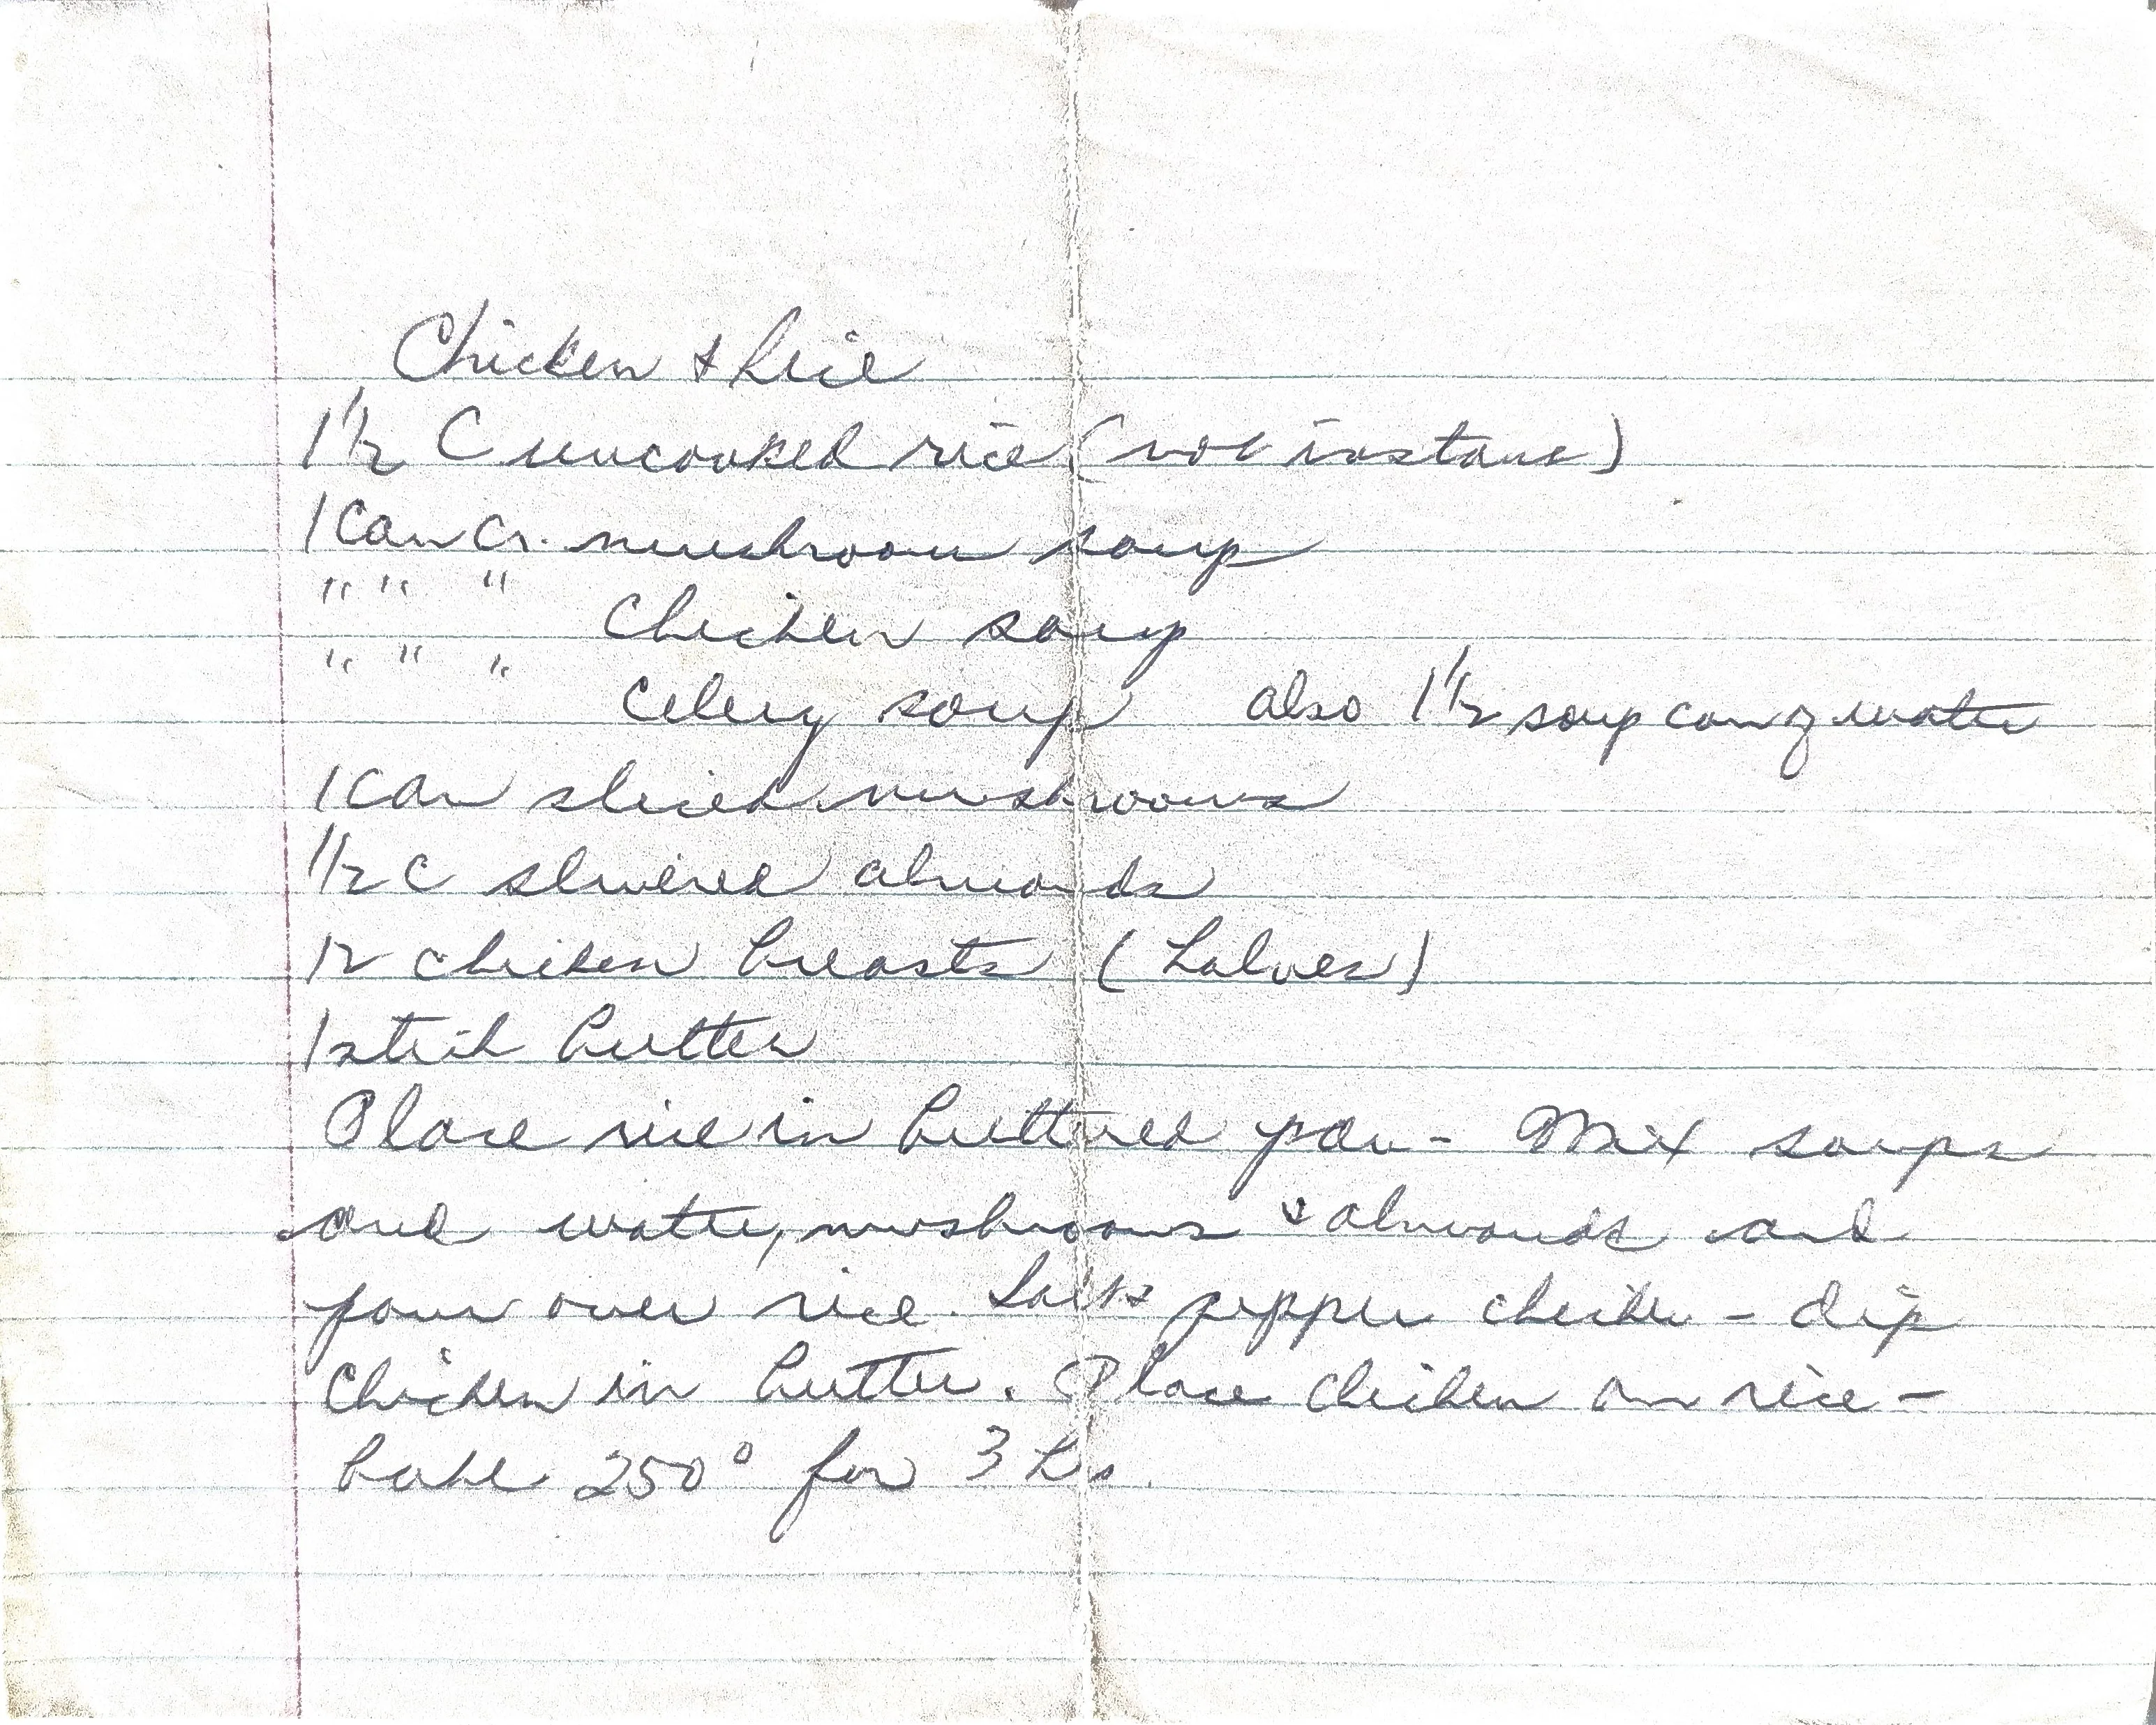 Chicken & Rice
1 1/2 C uncooked rice (not instant)
1 can cr. mushroom soup
" " " Chicken soup
" " " Celery soup also 1 1/2 soup can of water
1 can sliced mushrooms
1/2 c slivered almonds
12 chicken breasts (halves)
1 stick butter
Place rice in buttered pan - Mix soups
and water, mushrooms & almonds and
pour over rice. Salt & pepper chicken - dip
Chicken in butter. Place chicken on rice -
bake 250° for 3 hrs.